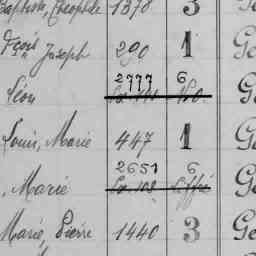 Baptiste, Théophile 1378 3 Ge
Fçois Joseph 290 1 Ge
Léon 2777 6 G
Louis, Marie 447 1 G
, Marie 2651 6 G
Marie, Pierre 1440 3 Ge